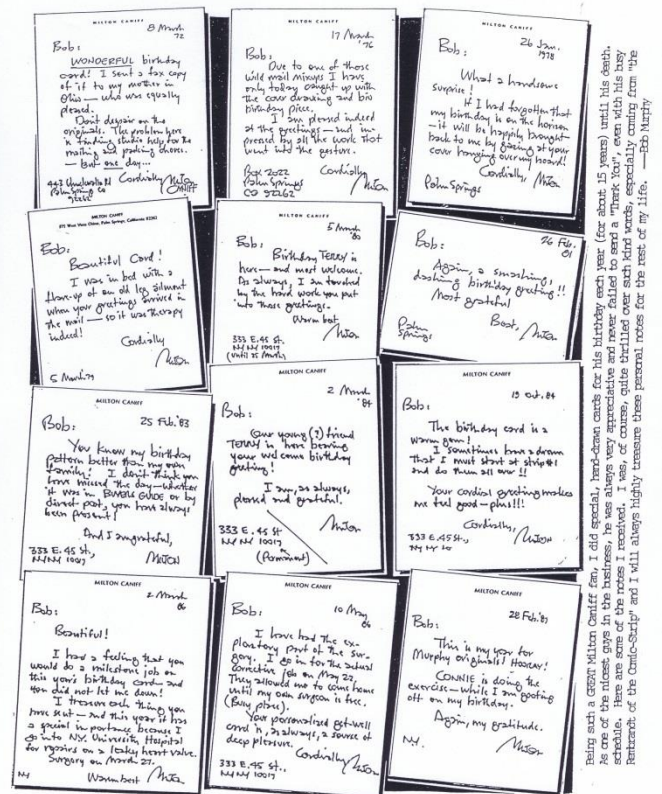 MILTON CANIFF
8 March
72
Bob:
WONDERFUL birthday
card! I sent a fax copy
of it to my mother in
Ohio — who was equally
pleased.
Don't despair on the
originals. The problem here
is finding studio help for the
mailing and packing chores.
— But one day —
Cordially
Milton
CANIFF
Palm Springs CA
92262
MILTON CANIFF
17 March
'76
Bob:
Due to one of those
wild mail mixups I have
only today caught up with
the cover drawing and bio
birthday piece.
I am pleased indeed
at the greetings — and im-
pressed by all the work that
went into the gesture.
Box 2022
Cordially,
Palm Springs
CA 92262
Milton
MILTON CANIFF
26 Jan.
1978
Bob:
What a handsome
surprise!
If I had forgotten that
my birthday is on the horizon
— it will be happily brought
back to me by gazing at your
cover hanging over my board!
Cordially,
Milton
Palm Springs
MILTON CANIFF
Palm Springs, California 92262
Bob:
Beautiful Card!
I was in bed with a
flare-up of an old leg ailment
when your greetings arrived in
the mail — so it was therapy
indeed!
Cordially
Milton
5 March 79
MILTON CANIFF
5 March
'80
Bob:
Birthday TERRY is
here — and most welcome.
As always, I am touched
by the hard work you put
into these greetings.
Warm best
Milton
333 E. 45 St.
NY NY 10017
(Until 25 March)
26 Feb.
81
Bob:
Again, a smashing,
dashing birthday greeting!!
Most grateful
Best,
Milton
Palm
Springs
MILTON CANIFF
25 Feb. '83
Bob:
You know my birthday
pattern better than my own
family! I don't think you
have missed the day — whether
it was in BUYERS GUIDE or by
direct post, you have always
been present!
And I am grateful,
333 E. 45 St.,
NY NY 10017
MILTON
MILTON CANIFF
2 March
'84
Bob:
Our young (?) friend
TERRY is here bearing
your welcome birthday
greeting!
I am, as always,
pleased and grateful.
Milton
333 E. 45 St
NY NY 10017
(Permanent)
MILTON CANIFF
19 Oct. 84
Bob:
The birthday card is a
warm gem!
I sometimes have a dream
that I must start at strip #1
and do them all over!!
Your cordial greeting makes
me feel good — plus!!!
Cordially,
Milton
333 E. 45 St.,
NY NY 10
MILTON CANIFF
2 March
86
Bob:
Beautiful!
I had a feeling that you
would do a milestone job on
this year's birthday card — and
you did not let me down!
I treasure each thing you
have sent — and this year it has
a special importance because I
go into N.Y. University Hospital
for repairs on a leaky heart valve.
Surgery on March 27.
NY
Warmest
Milton
MILTON CANIFF
10 May
86
Bob:
I have had the ex-
ploratory part of the sur-
gery. I go in for the actual
corrective job on May 22.
They allowed me to come home
until my own surgeon is free.
(Busy place).
Your personalized get-well
card is, as always, a source of
deep pleasure.
Cordially
Milton
333 E. 45 St.,
NY NY 10017
MILTON CANIFF
28 Feb. '87
Bob:
This is my year for
Murphy originals! Hooray!
CONNIE is doing the
exercise — while I am goofing
off on my birthday.
Again, my gratitude.
N.Y.
Milton
Being such a GREAT Milton Caniff fan, I did special, hand-drawn cards for his birthday each year (for about 15 years) until his death.
As one of the nicest guys in the business, he was always very appreciative and never failed to send a "Thank You", even with his busy
schedule. Here are some of the notes I received. I was, of course, quite thrilled over such kind words, especially coming from "the
Rembrandt of the Comic-Strip" and I will always highly treasure these personal notes for the rest of my life. —Bob Murphy